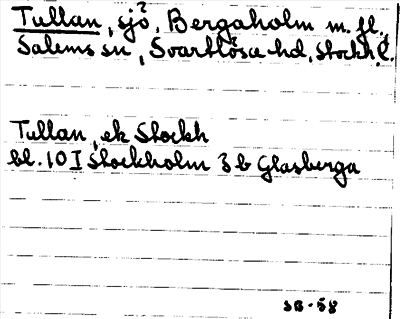 Tullan, sjö?, Bergaholm m. fl.,
Salems sn, Svartlösa hd, Stockh. l.
Tullan, ek Stockh
bl. 10 I Stockholm 3 b Glasberga
SB-58